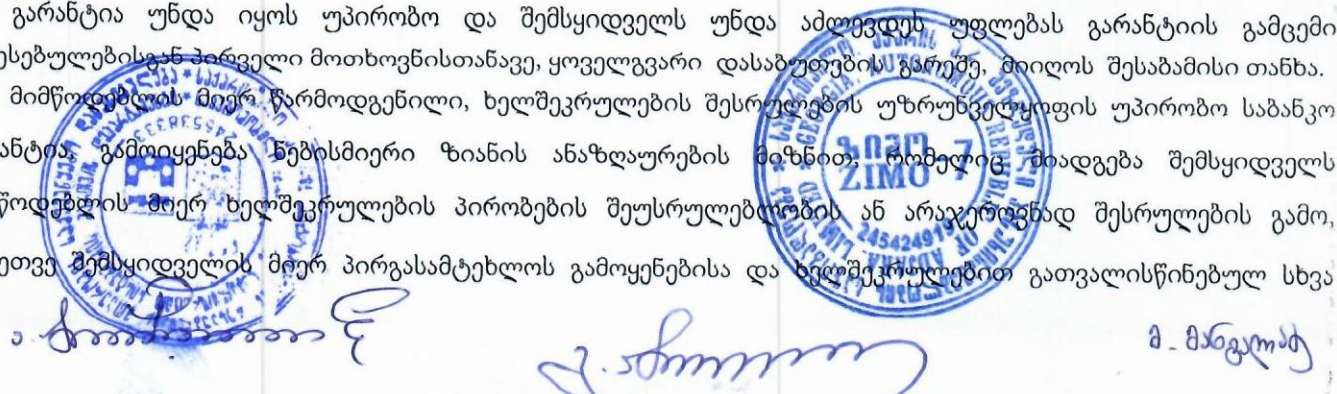 გარანტია უნდა იყოს უპირობო და შემსყიდველს უნდა აძლევდეს უფლებას გარანტიის გამცემი
ესებულებისგან პირველი მოთხოვნისთანავე, ყოველგვარი დასაბუთების გარეშე, მიიღოს შესაბამისი თანხა.
მიმწოდებლის მიერ წარმოდგენილი, ხელშეკრულების შესრულების უზრუნველყოფის უპირობო საბანკო
ანტია, გამოიყენება ნებისმიერი ზიანის ანაზღაურების მიზნით, რომელიც მიადგება შემსყიდველს
წოდებლის მიერ ხელშეკრულების პირობების შეუსრულებლობის ან არაჯეროვნად შესრულების გამო,
ეთვე შემსყიდველის მიერ პირგასამტეხლოს გამოყენებისა და ხელშეკრულებით გათვალისწინებულ სხვა
ზიმო 7
ZIMO
GEORGIA, KUTAISI
REPUBLIC OF ADJARA
LIMITED